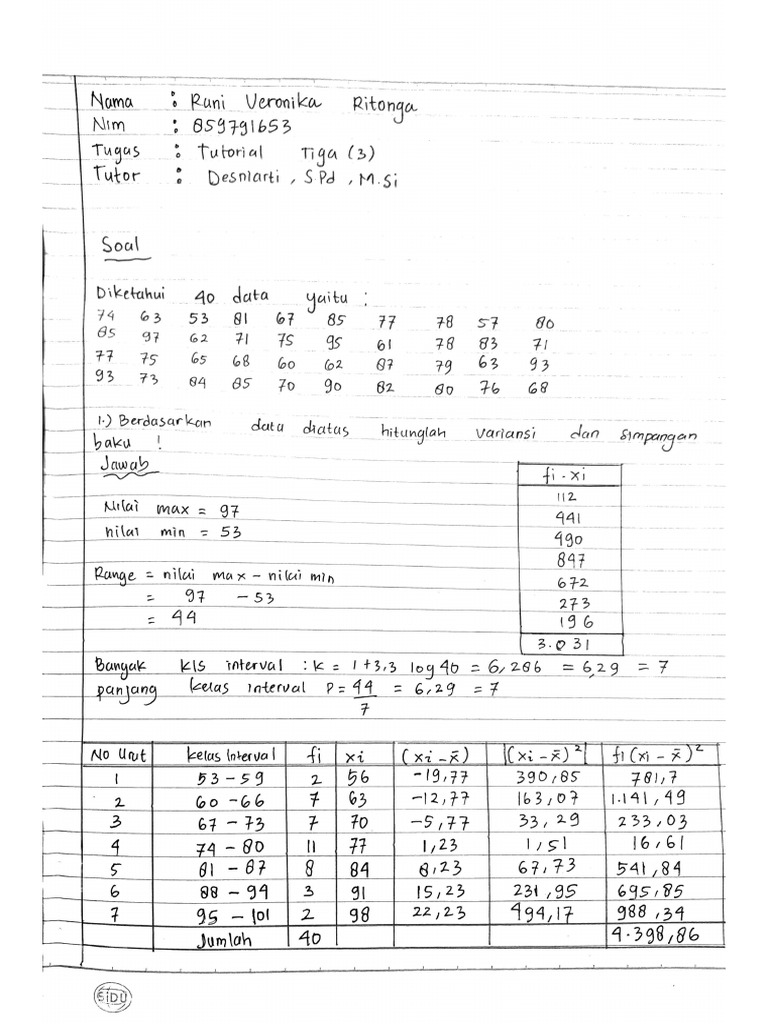 Nama : Runi Veronika Ritonga
Nim : 859791653
Tugas : Tutorial Tiga (3)
Tutor : Desniarti, S.Pd, M.Si
Soal
Diketahui 40 data yaitu :
74 63 53 81 67 85 77 78 57 80
85 97 62 71 75 95 61 78 83 71
77 75 65 68 60 62 87 79 63 93
93 73 84 85 70 90 82 80 76 68
1.) Berdasarkan data diatas hitunglah variansi dan simpangan
baku !
Jawab
Nilai max = 97
nilai min = 53
Range = nilai max - nilai min
= 97 - 53
= 44
fi . xi
112
441
490
847
672
273
196
3.031
Banyak kls interval : K = 1+3,3 log 40 = 6,286 = 6,29 = 7
panjang kelas interval P = 44/7 = 6,29 = 7
No Urut kelas Interval fi xi (xi - x̄) |(xi - x̄)²| fi (xi - x̄)²
1 53 - 59 2 56 -19,77 390,85 781,7
2 60 - 66 7 63 -12,77 163,07 1.141,49
3 67 - 73 7 70 -5,77 33,29 233,03
4 74 - 80 11 77 1,23 1,51 16,61
5 81 - 87 8 84 8,23 67,73 541,84
6 88 - 94 3 91 15,23 231,95 695,85
7 95 - 101 2 98 22,23 494,17 988,34
Jumlah 40 4.398,86
SIDU